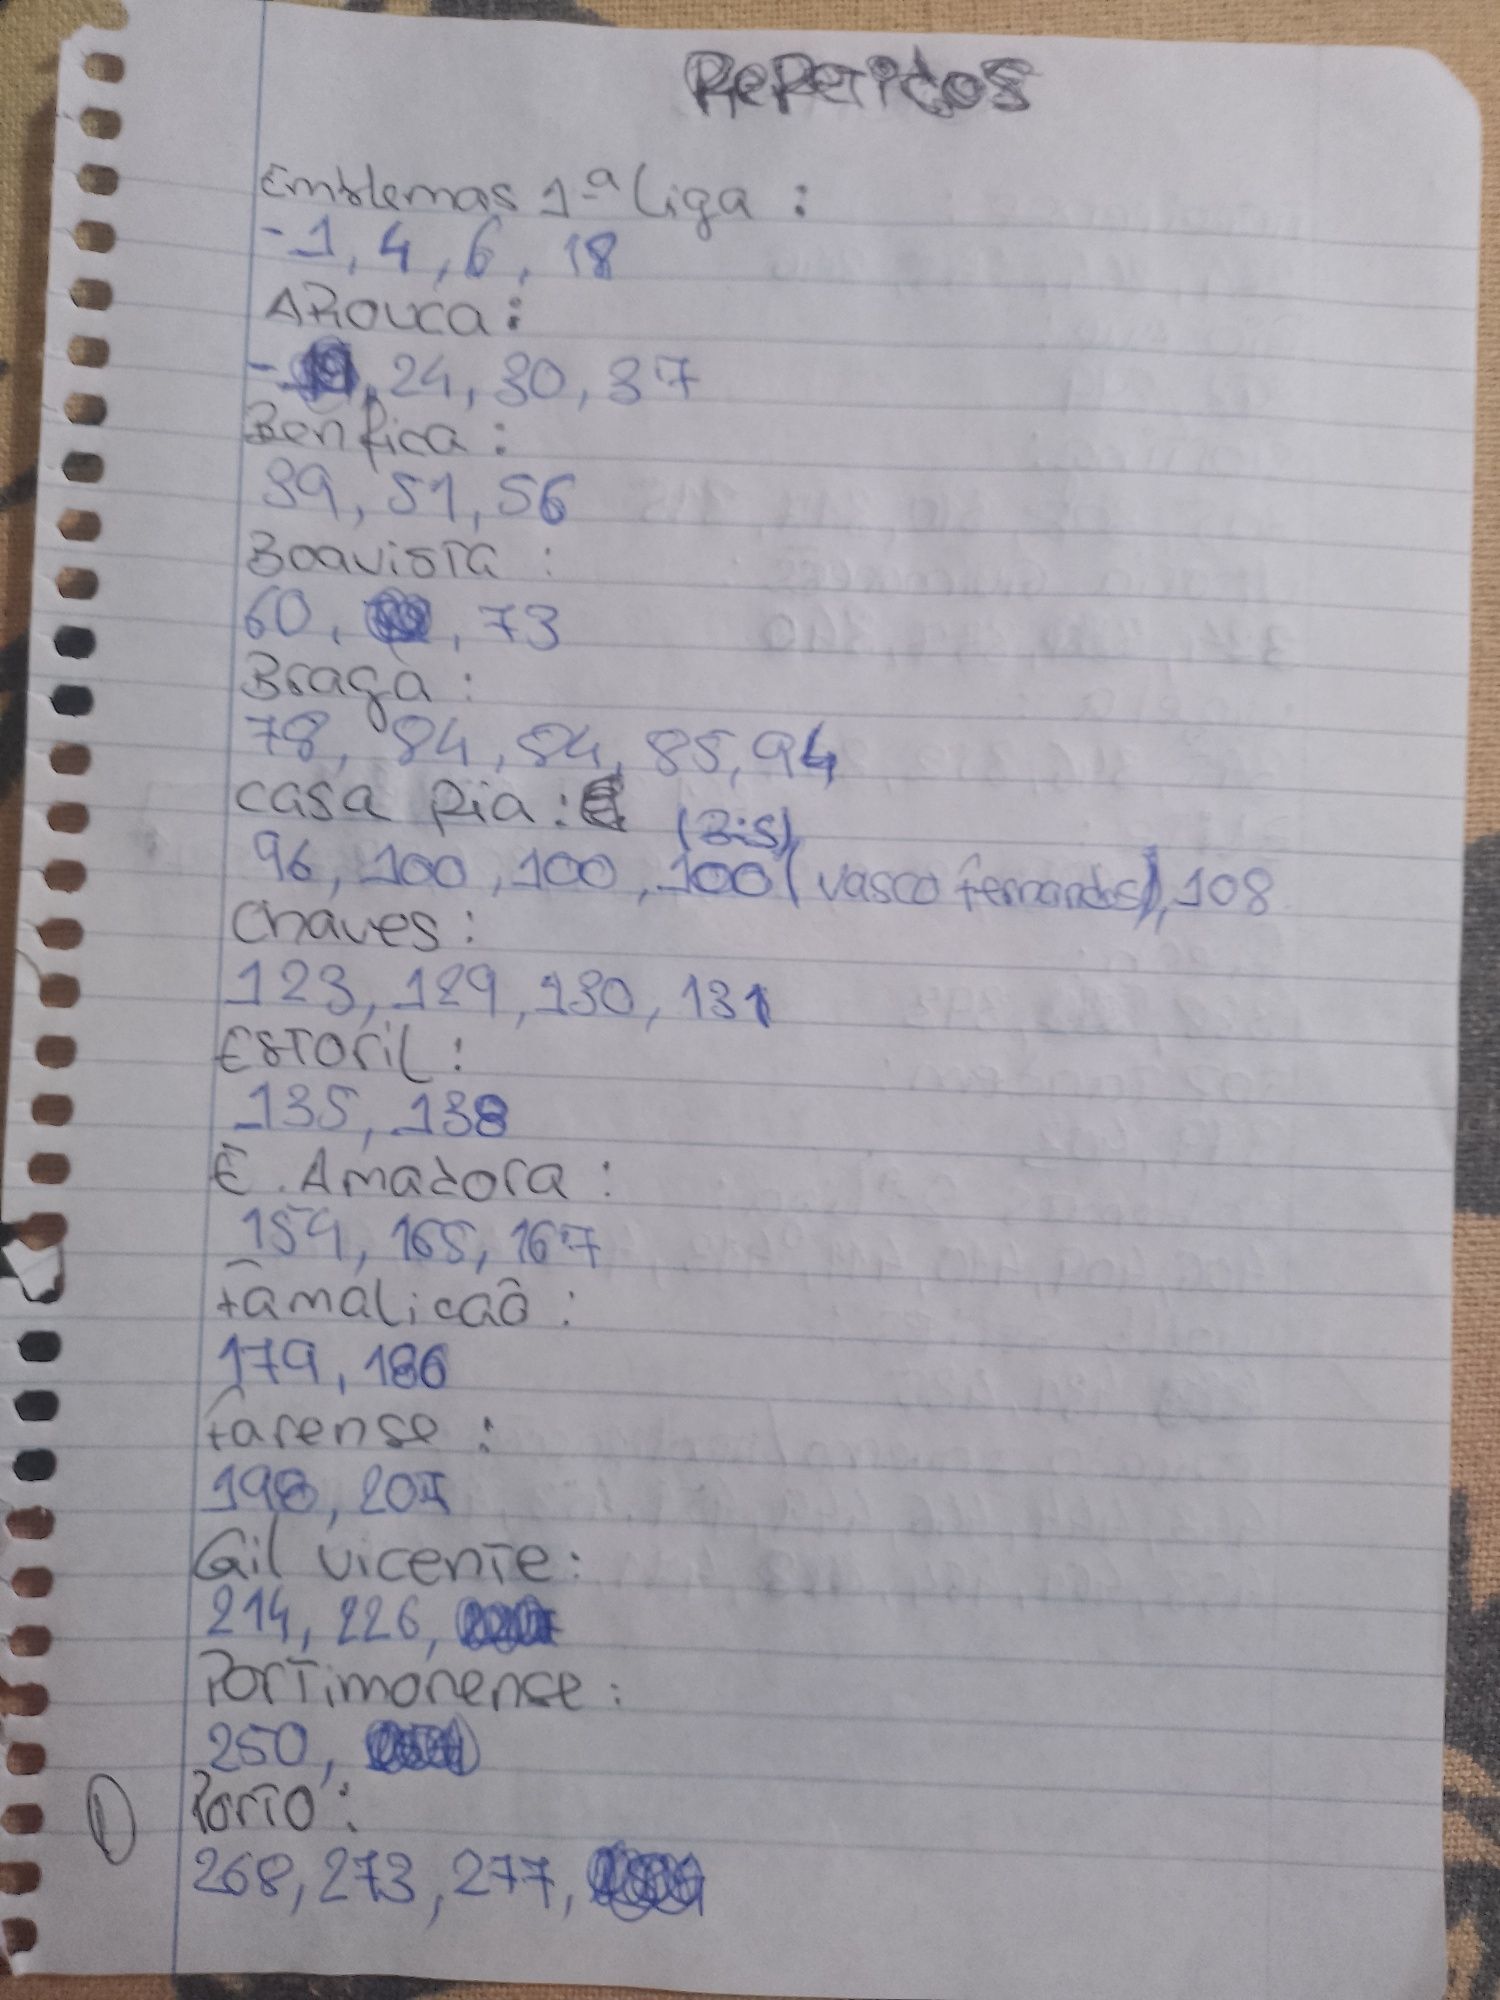 Repetidos
Emblemas 1ª Liga :
- 1, 4, 6, 18
Arouca :
- , 24, 30, 37
Benfica :
39, 51, 56
Boavista :
60, , 73
Braga :
78, 84, 84, 85, 94
Casa Pia :
(Bis)
96, 100, 100, 100 (Vasco Fernandes), 108
Chaves :
123, 129, 130, 131
Estoril :
135, 138
E. Amadora :
159, 165, 167
Famalicão :
179, 186
Farense :
198, 207
Gil Vicente :
214, 226,
Portimonense :
250,
Porto :
268, 273, 277,
1